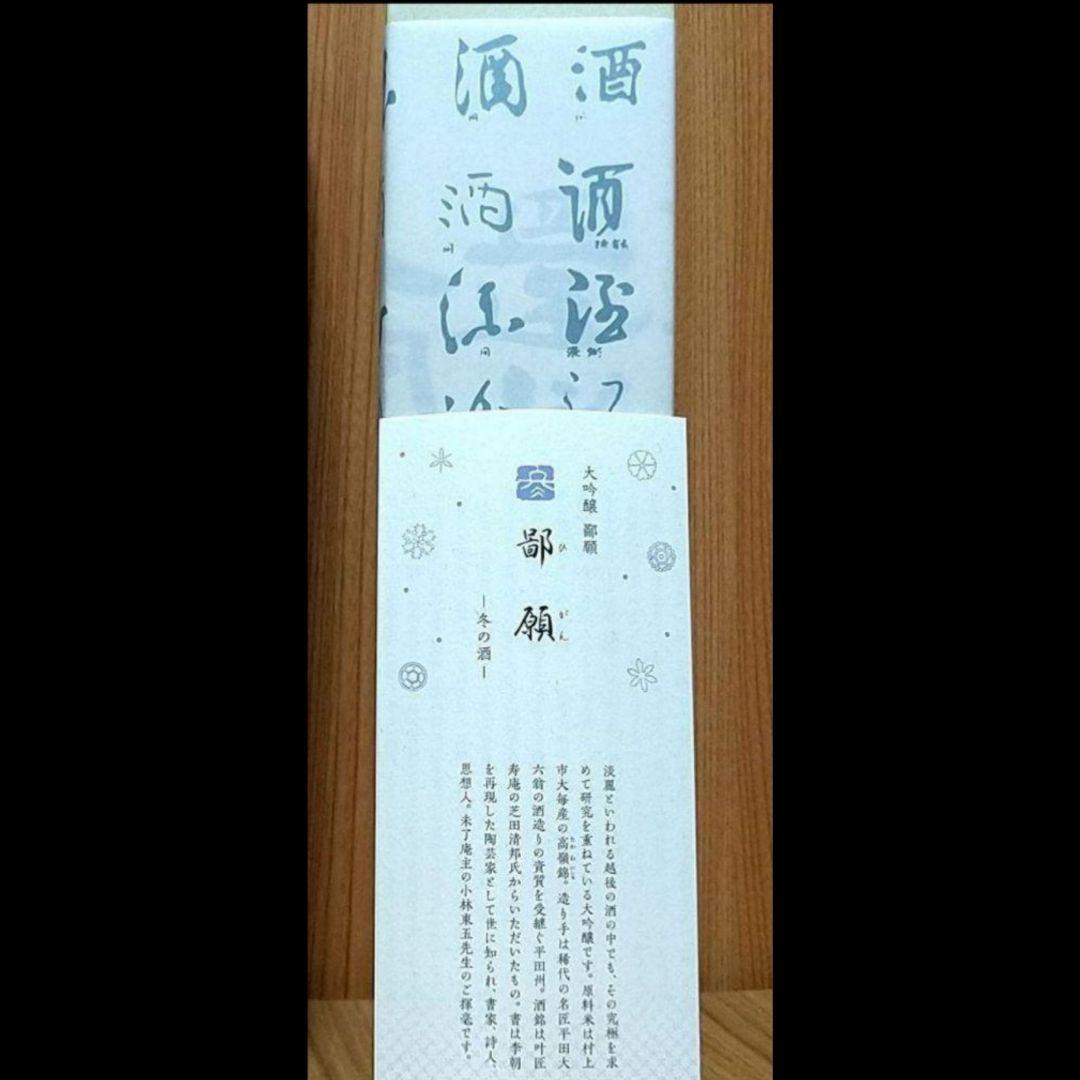 酒 酒
酒 酒
大吟醸 鄙願
鄙願
ひ
がん
―冬の酒―
淡麗といわれる越後の酒の中でも、その究極を求
めて研究を重ねている大吟醸です。原料米は村上
市大毎産の高嶺錦。造り手は稀代の名匠平田大
たかねにしき
六翁の酒造りの資質を受継ぐ平田州。酒銘は叶匠
寿庵の芝田清邦氏からいただいたもの。書は李朝
を再現した陶芸家として世に知られ、書家、詩人、
思想人。未了庵主の小林東五先生のご揮毫です。